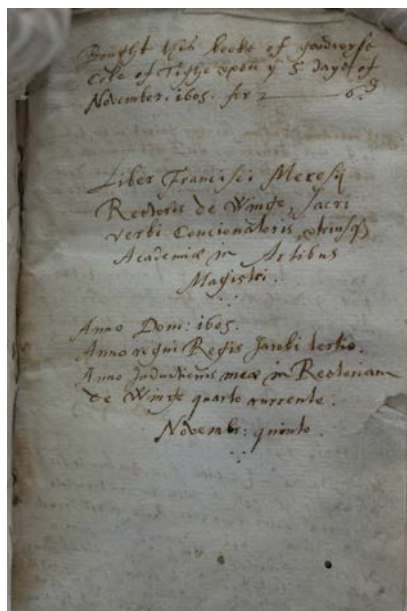 Bought this booke of goodwyfe
Cole of Tighe upon yͤ 5. daye of
November. 1605. for 2 —— 6ᵈ
Liber Francisci Meresij
Rectoris de Winge, Sacri
verbi Concionatoris, utriusq₃
Academiæ in Artibus
Magistri.
Anno Dom: 1605.
Anno regni Regis Jacobi tertio.
Anno Inductionis meæ in Rectoriam
de Winge quarto currente.
Novembr: quinto.